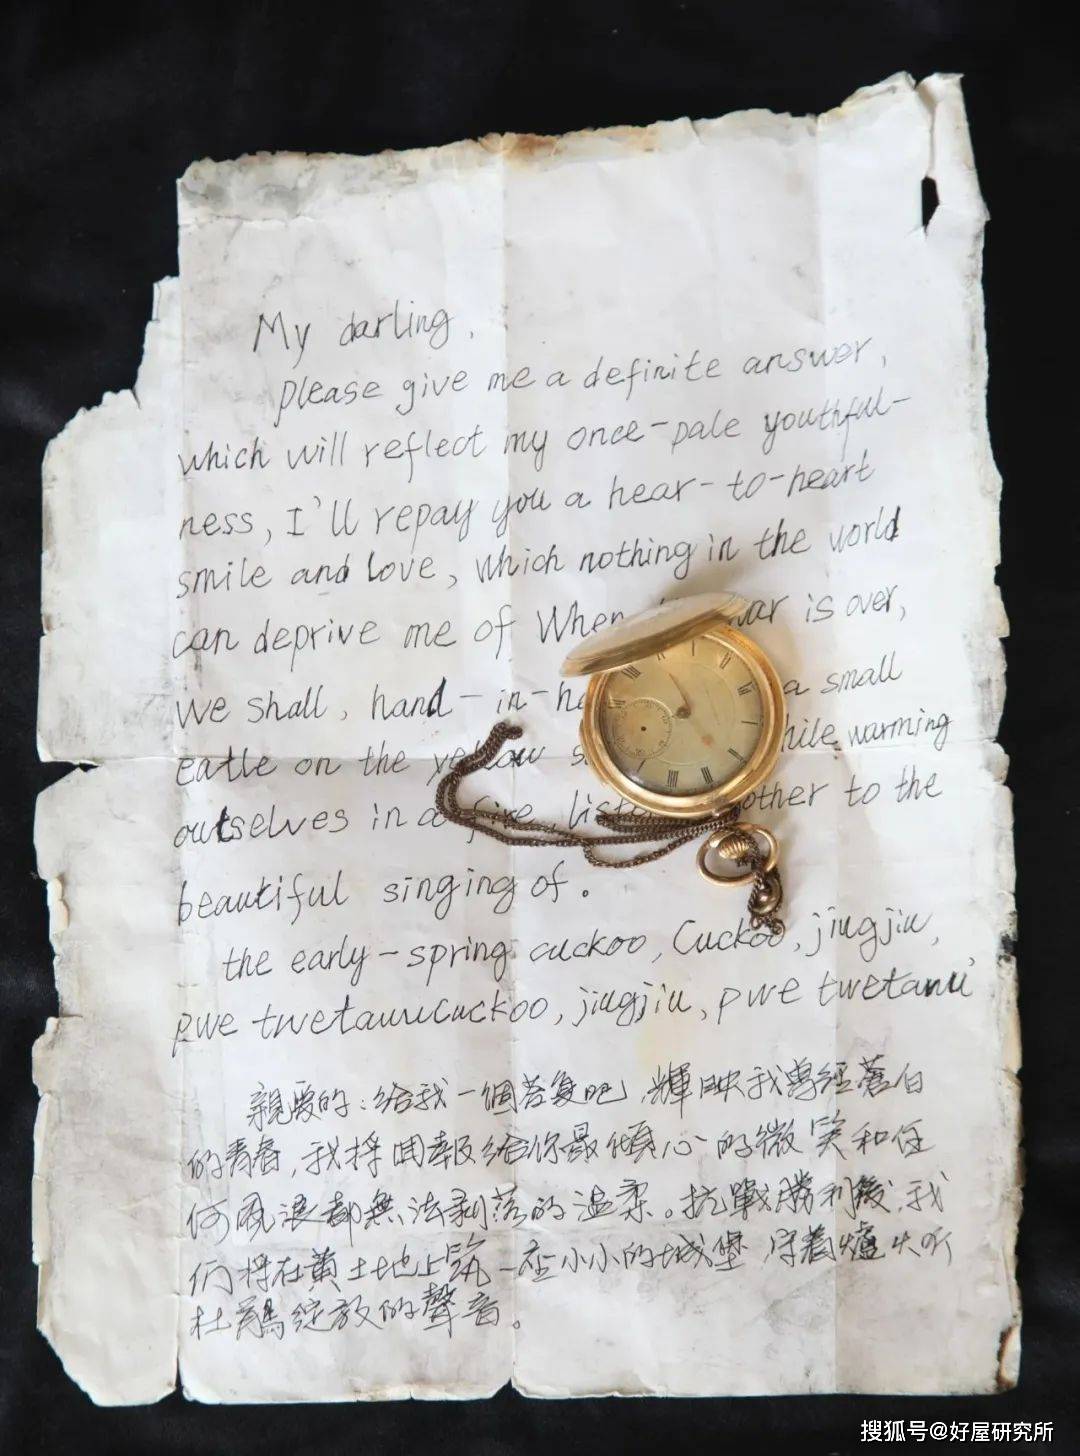 My darling,
please give me a definite answer,
which will reflect my once-pale youthful-
ness, I'll repay you a hear-to-heart
smile and love, which nothing in the world
can deprive me of When war is over,
we shall, hand-in-ha a small
eatle on the yellow s hile warming
outselves in a fire, list other to the
beautiful singing of.
the early-spring cuckoo, Cuckoo, jiugjiu,
pwe twetauucuckoo, jiugjiu, pwe twetauu'
親愛的：給我一個答复吧，輝映我曾經蒼白
的青春，我將回報給你最傾心的微笑和任
何風浪都無法剥落的温柔。抗戰勝利後，我
们將在黄土地上筑一座小小的城堡，守着爐火听
杜鵑綻放的聲音。
搜狐号@好屋研究所